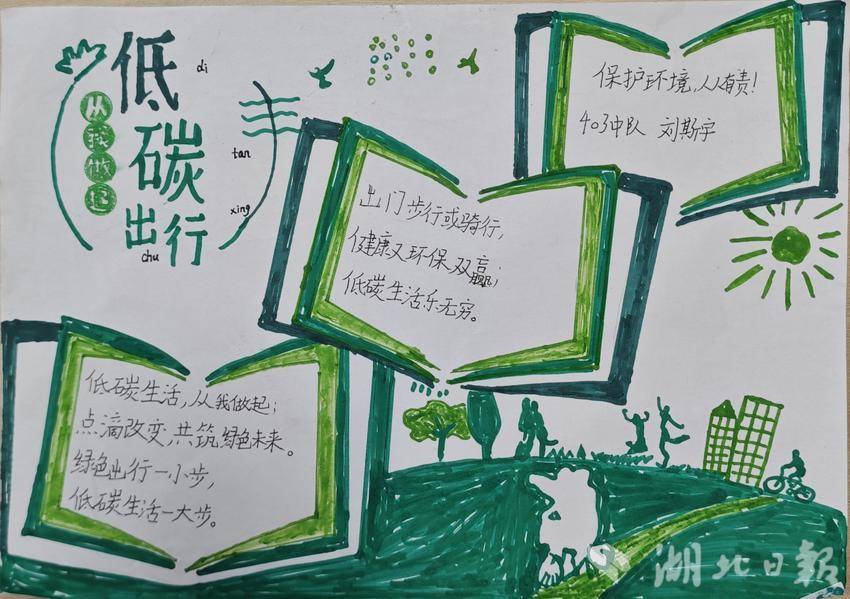 低 di
碳 tan
出行 chu xing
从我做起
保护环境,人人有责!
403中队 刘斯宇
出门步行或骑行,
健康又环保双赢;
低碳生活乐无穷。
低碳生活,从我做起;
点滴改变,共筑绿色未来。
绿色出行一小步,
低碳生活一大步。
湖北日報